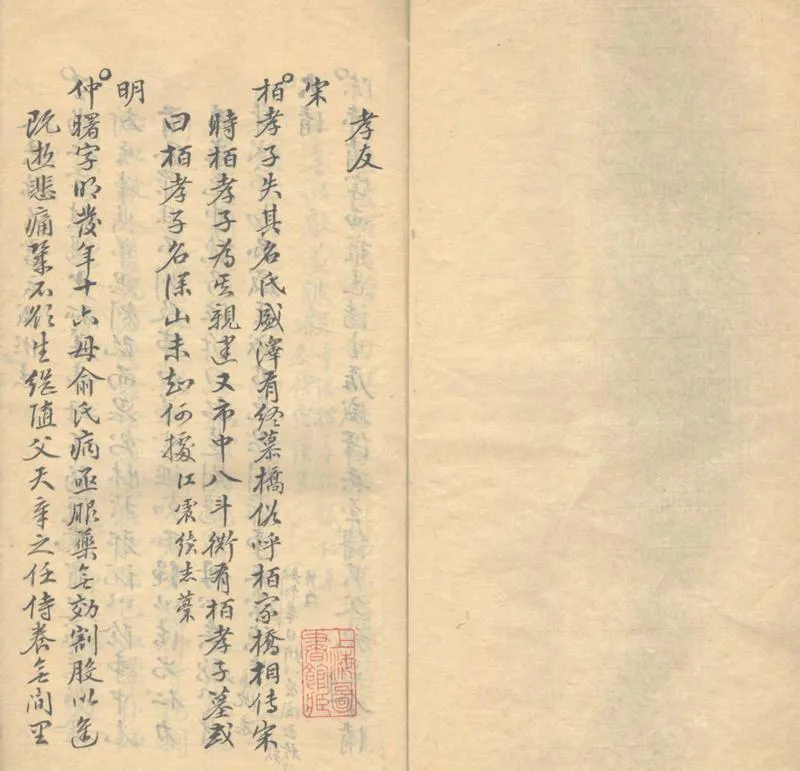 孝友
宋
栢孝子失其名氏盛澤有終慕橋俗呼栢家橋相傳宋
時栢孝子為其親建又市中八斗衖有栢孝子墓或
曰栢孝子名深山未知何據江震續志藁
明
仲曙字明發年十六母俞氏病亟服藥無効割股以進
既逝悲痛幾不欲生繼隨父天章之任侍養無間里
上海圖書館藏